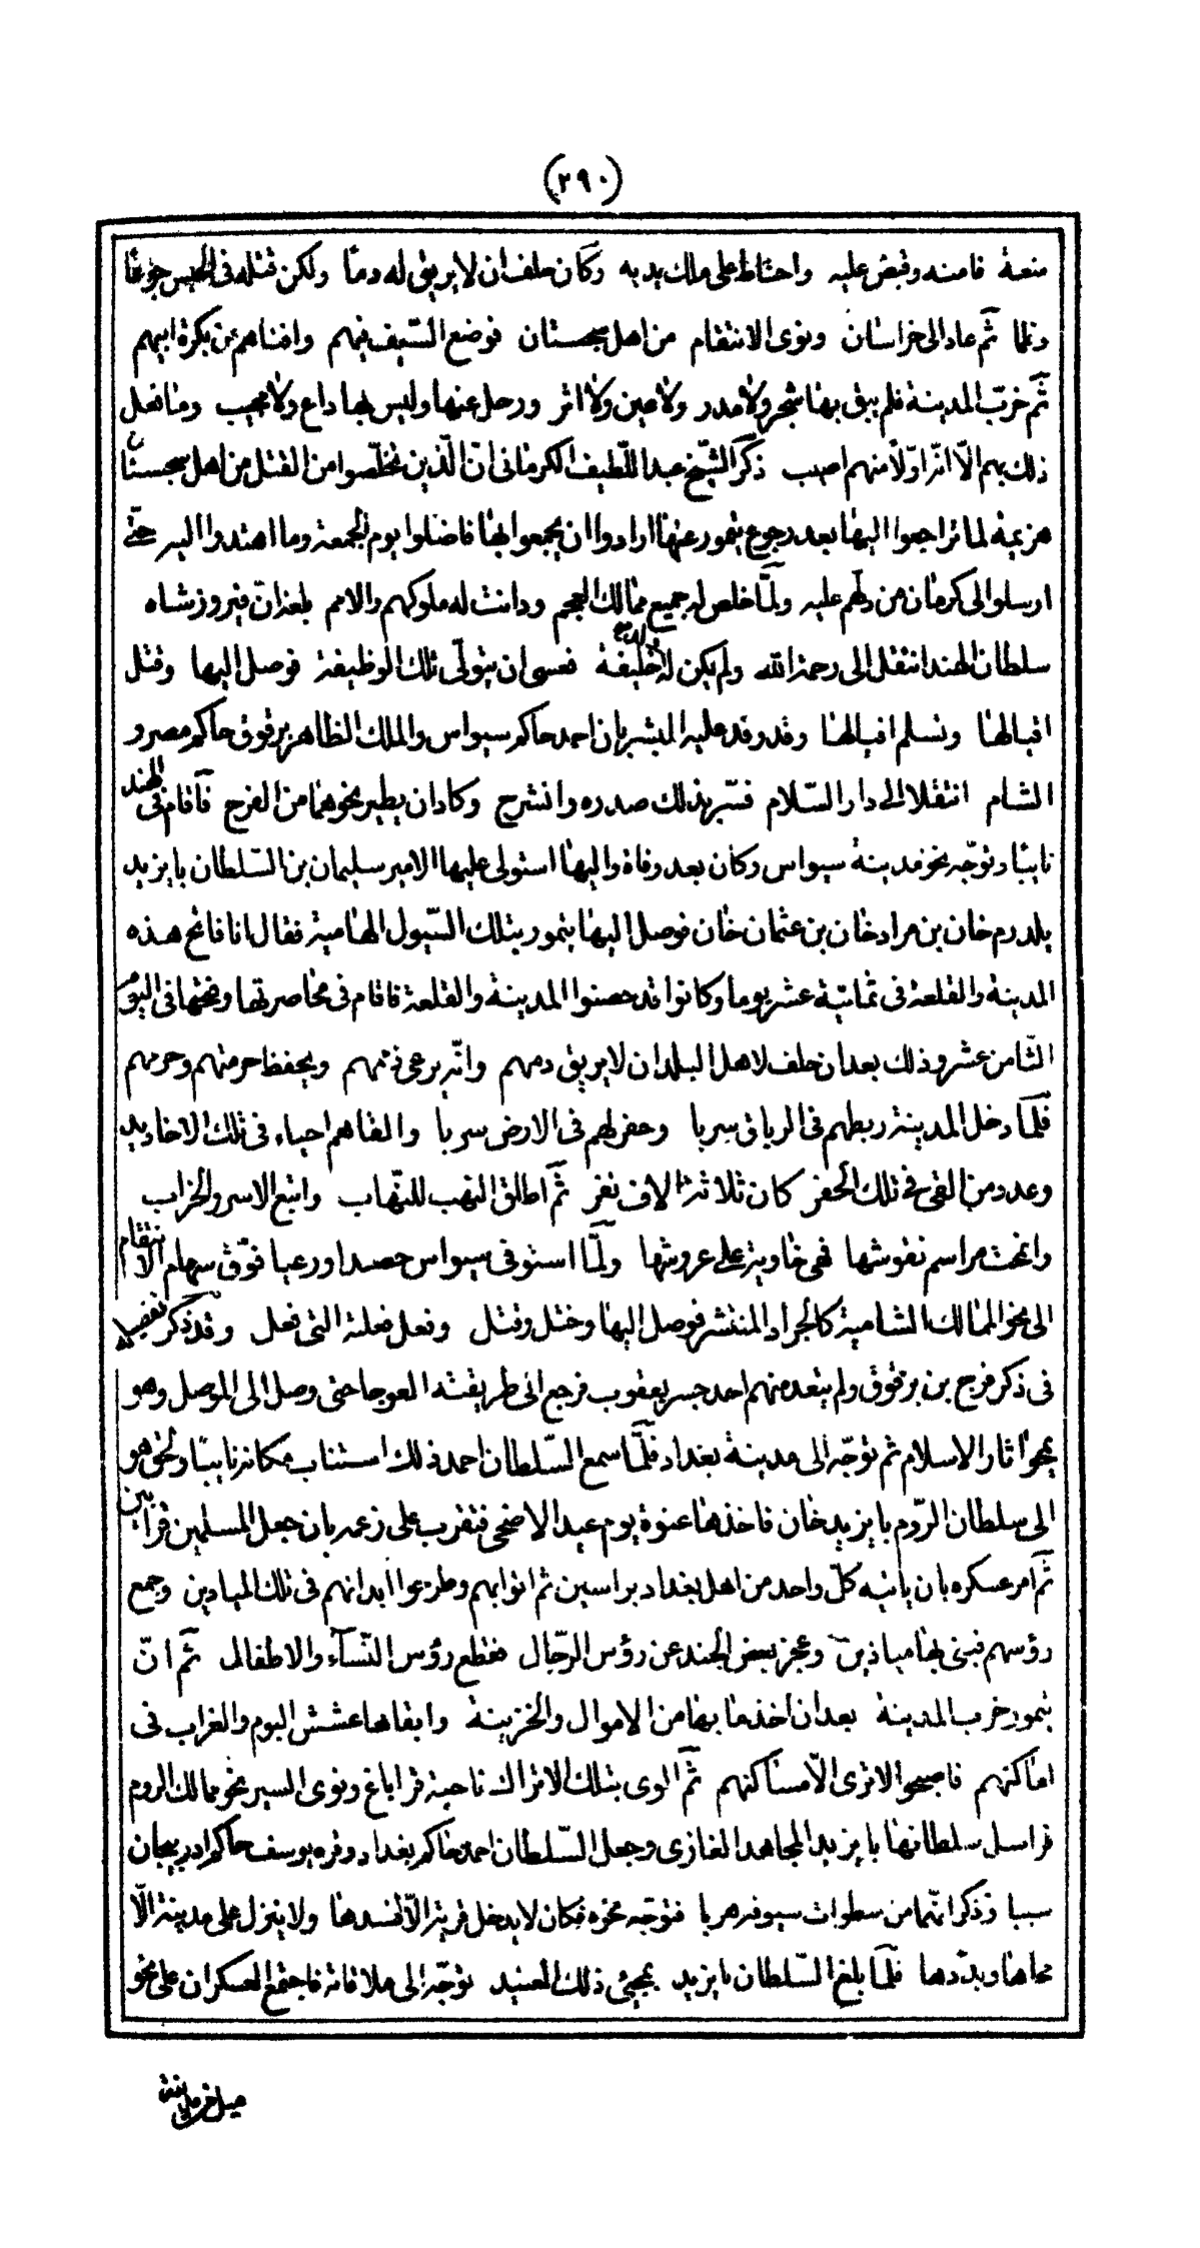 (٢٩٠)
منعة فامنه وقبض عليه واحتاط على ملك يديه وكان حلف ان لا يريق له دمًا ولكن قتله فى الحبس جوعًا
وظما ثم عاد الى خراسان ونوى الانتقام من اهل سجستان فوضع السّيف فيهم وافناهم عن بكرة ابيهم
ثم خرّب المدينة فلم يبق بها شجر ولا مدر ولا عين ولا اثر ورحل عنها وليس بها داع ولا مجيب وما فعل
ذلك بهم الّا انّه اوّلا منهم اصيب ذكر الشّيخ عبد اللّطيف الكرمانى انّ الّذين تخلّصوا من القتل من اهل سجستان
هزيمة لما تراجعوا اليها بعد رجوع تيمور عنها ارادوا ان يجمعوا بها فاضلوا يوم الجمعة وما اهتدوا اليه حتّى
ارسلوا الى كرمان من دلّهم عليه ولمّا خلص له جميع ممالك العجم ودانت له ملوكهم والامم بلغه انّ فيروز شاه
سلطان الهند انتقل الى رحمة الله ولم يكن له ولد خليفة فسعى ان يتولّى تلك الوظيفة فوصل اليها وقتل
اقبالها وتسلم افيالها وقد وفد عليه المبشر بان احمد حاكم سيواس والملك الظاهر برقوق حاكم مصر و
الشام انتقلا الى دار السّلام فسّر بذلك صدره وانشرح وكاد ان يطير نحوهما من الفرح فاقام فى الهند
نايبًا وتوجّه نحو مدينة سيواس وكان بعد وفاة واليها استولى عليها الامير سليمان بن السّلطان بايزيد
يلدرم خان بن مراد خان بن عثمان خان فوصل اليها تيمور بتلك السّيول الهامية فقال انا فاتح هذه
المدينة والقلعة فى ثمانية عشر يوما وكانوا قد حصنوا المدينة والقلعة فاقام فى محاصرتها وفتحها فى اليوم
الثّامن عشر وذلك بعد ان حلف لاهل البلد ان لا يريق دمهم وانّه يرعى ذممهم ويحفظ حرمتهم وحرمهم
فلمّا دخل المدينة ربطهم فى الرباق سربا وحفر لهم فى الارض سربا والقاهم احياء فى تلك الاخاديد
وعدد من القى فى تلك الحفر كان ثلاثة الاف نفر ثم اطلق النهب للنهّاب واتبع الاسر والخراب
وانمحت مراسم نقوشها فهى خاوية على عروشها ولمّا استوفى سيواس حصدا ورعيا فوّق سهام الانتقام
الى نحو الممالك الشامية كالجراد المنتشر فوصل اليها وختل وقتل وفعل فعلته التى فعل وقد ذكر تفصيله
فى ذكر فرج بن برقوق ولم يتعد منهم احد جسر يعقوب فرجع الى طريقته العوجا حتى وصل الى الموصل وهو
يمحو اثار الاسلام ثم توجّه الى مدينة بغداد فلمّا سمع السّلطان احمد ذلك استناب مكانه نايبًا ولحق هو
الى سلطان الرّوم بايزيد خان فاخذها عنوة يوم عيد الاضحى فتقرب على زعمه بان جعل المسلمين قرابين
ثم امر عسكره بان ياتيه كلّ واحد من اهل بغداد براسين ثم اتوا بهم وطرحوا ابدانهم فى تلك الميادين وجمع
رؤسهم فبنى بها مياذين وعجز بعض الجند عن رؤس الرجّال فقطع رؤس النّسآء والاطفال ثم انّ
تيمور خرب المدينة بعد ان اخذ ما بها من الاموال والخزينة وابقاها عشش البوم والغراب فى
اماكنهم فاصبحوا لا ترى الّا مساكنهم ثم الوى بتلك الاتراك ناحية قراباغ ونوى السير نحو ممالك الروم
فراسل سلطانها بايزيد المجاهد الغازى وجعل السّلطان احمد حاكم بغداد وقره يوسف حاكم اذربيجان
سببا وذكر انّهما من سطوات سيوفه هربا فتوجّه نحوه فكان لا يدخل قرية الّا افسدها ولا ينزل على مدينة الّا
محاها وبدّدها فلمّا بلغ السّلطان بايزيد بمجئ ذلك العنيد توجّه الى ملاقاته فاجتمع العسكران على نحو